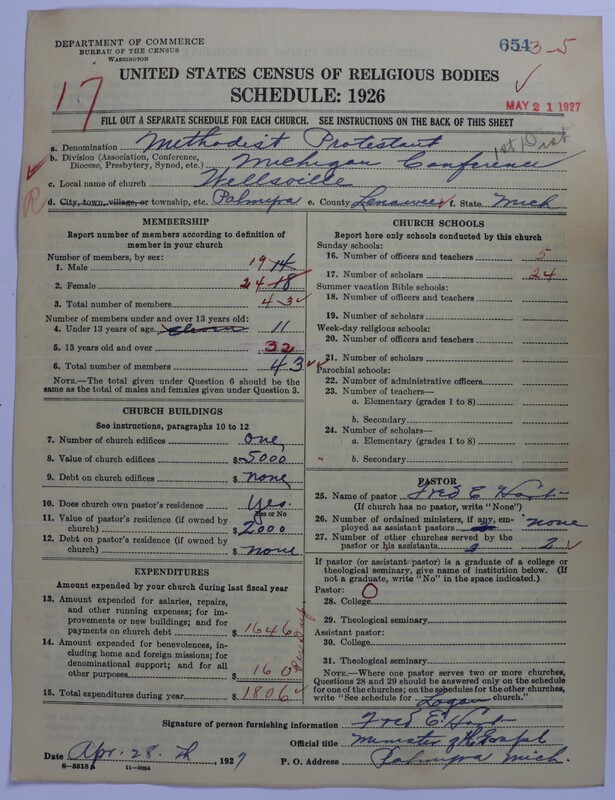 DEPARTMENT OF COMMERCE
BUREAU OF THE CENSUS
WASHINGTON
6543-5
17
UNITED STATES CENSUS OF RELIGIOUS BODIES
SCHEDULE: 1926
MAY 21 1927
FILL OUT A SEPARATE SCHEDULE FOR EACH CHURCH. SEE INSTRUCTIONS ON THE BACK OF THIS SHEET
a. Denomination Methodist Protestant
1st Dist
b. Division (Association, Conference, Diocese, Presbytery, Synod, etc.) Michigan Conference
c. Local name of church Wellsville
R
d. City, town, village, or township, etc. Palmyra e. County Lenawee f. State Mich
MEMBERSHIP
Report number of members according to definition of
member in your church
Number of members, by sex:
1. Male 19 14
2. Female 24 18
3. Total number of members 43
Number of members under and over 13 years old:
4. Under 13 years of age 11
5. 13 years old and over 32
6. Total number of members 43
NOTE.—The total given under Question 6 should be
the same as the total of males and females given under Question 3.
CHURCH BUILDINGS
See instructions, paragraphs 10 to 12
7. Number of church edifices one
8. Value of church edifices $5000
9. Debt on church edifices $none
10. Does church own pastor's residence Yes.
Yes or No
11. Value of pastor's residence (if owned by
church) $2000
12. Debt on pastor's residence (if owned by
church) $none
EXPENDITURES
Amount expended by your church during last fiscal year
13. Amount expended for salaries, repairs,
and other running expenses; for im-
provements or new buildings; and for
payments on church debt $1646
14. Amount expended for benevolences, in-
cluding home and foreign missions; for
denominational support; and for all
other purposes $160
15. Total expenditures during year $1806
CHURCH SCHOOLS
Report here only schools conducted by this church
Sunday schools:
16. Number of officers and teachers 5
17. Number of scholars 24
Summer vacation Bible schools:
18. Number of officers and teachers
19. Number of scholars
Week-day religious schools:
20. Number of officers and teachers
21. Number of scholars
Parochial schools:
22. Number of administrative officers
23. Number of teachers—
a. Elementary (grades 1 to 8)
b. Secondary
24. Number of scholars—
a. Elementary (grades 1 to 8)
b. Secondary
PASTOR
25. Name of pastor Fred E Hart
(If church has no pastor, write "None")
26. Number of ordained ministers, if any, em-
ployed as assistant pastors none
27. Number of other churches served by the
pastor or his assistants 2
If pastor (or assistant pastor) is a graduate of a college or
theological seminary, give name of institution below. (If
not a graduate, write "No" in the space indicated.)
Pastor: O
28. College
29. Theological seminary
Assistant pastor:
30. College
31. Theological seminary
NOTE.—Where one pastor serves two or more churches,
Questions 28 and 29 should be answered only on the schedule
for one of the churches; on the schedules for the other churches,
write "See schedule for Logan church."
Signature of person furnishing information Fred E. Hart
Official title Minister of Gospel
Date Apr. 28. th, 1927 P. O. Address Palmyra Mich.
8—5518 11—9264